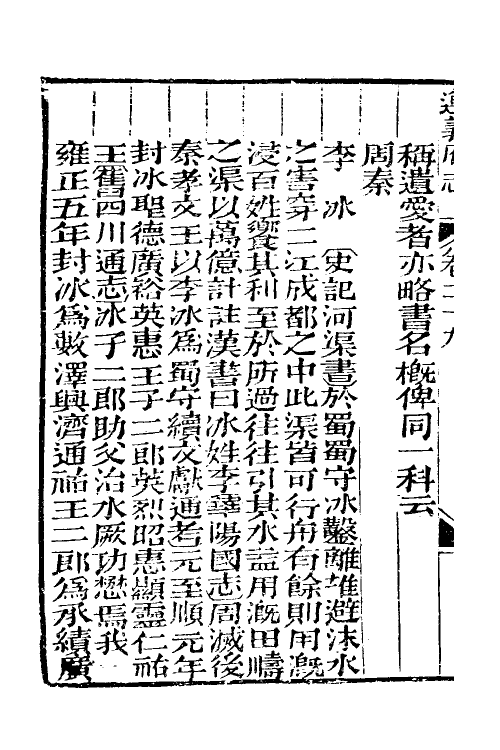 遵義府志 卷二十九
稱遺愛者亦略書名槪俾同一科云
周秦
李 冰 史記河渠書於蜀蜀守冰鑿離堆避沫水
之害穿二江成都之中此渠皆可行舟有餘則用漑
浸百姓饗其利至於所過往往引其水益用漑田疇
之渠以萬億計註漢書曰冰姓李華陽國志周滅後
秦孝文王以李冰爲蜀守續文獻通考元至順元年
封冰聖德廣裕英惠王子二郎英烈昭惠顯靈仁祐
王舊四川通志冰子二郎助父治水厥功懋焉我
雍正五年封冰爲敷澤興濟通祐王二郎爲承續廣